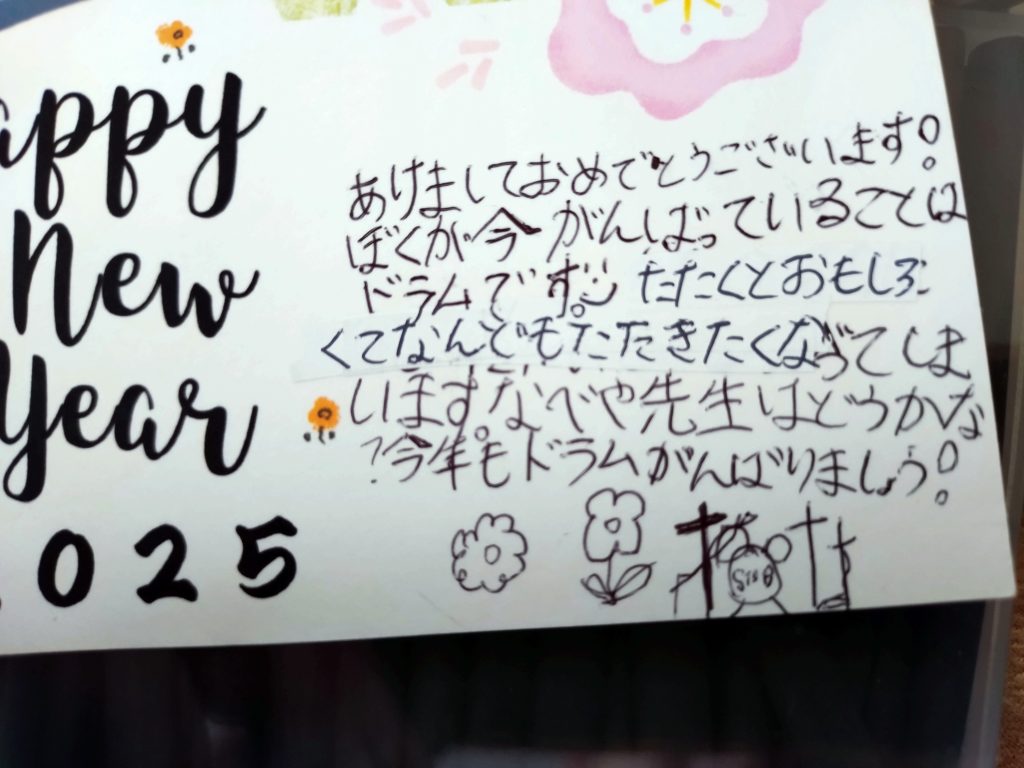 appy
New
Year
025
あけましておめでとうございます!
ぼくが今がんばっていることは
ドラムです。たたくとおもしろ
くてなんでもたたきたくなってしま
います。なべや先生はどうかな
?今年もドラムがんばりましょう!